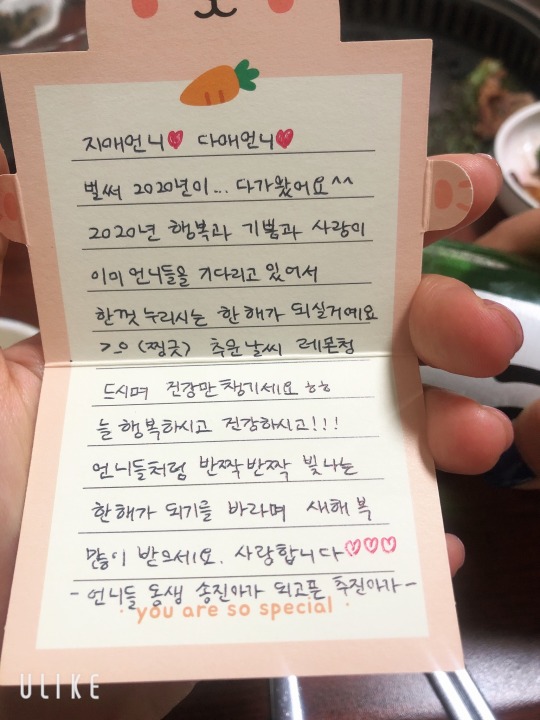 지매언니♥ 다매언니♥
벌써 2020년이... 다가왔어요^^
2020년 행복과 기쁨과 사랑이
이미 언니들을 기다리고 있어서
한껏 누리시는 한 해가 되실거예요
>_ㅇ (찡긋) 추운날씨 레몬청
드시며 건강만 챙기세요 ㅎㅎ
늘 행복하시고 건강하시고!!!
언니들처럼 반짝반짝 빛나는
한해가 되기를 바라며 새해 복
많이 받으세요. 사랑합니다♡♡♡
- 언니들 동생 송진아가 되고픈 추진아가 -
you are so special
ULIKE